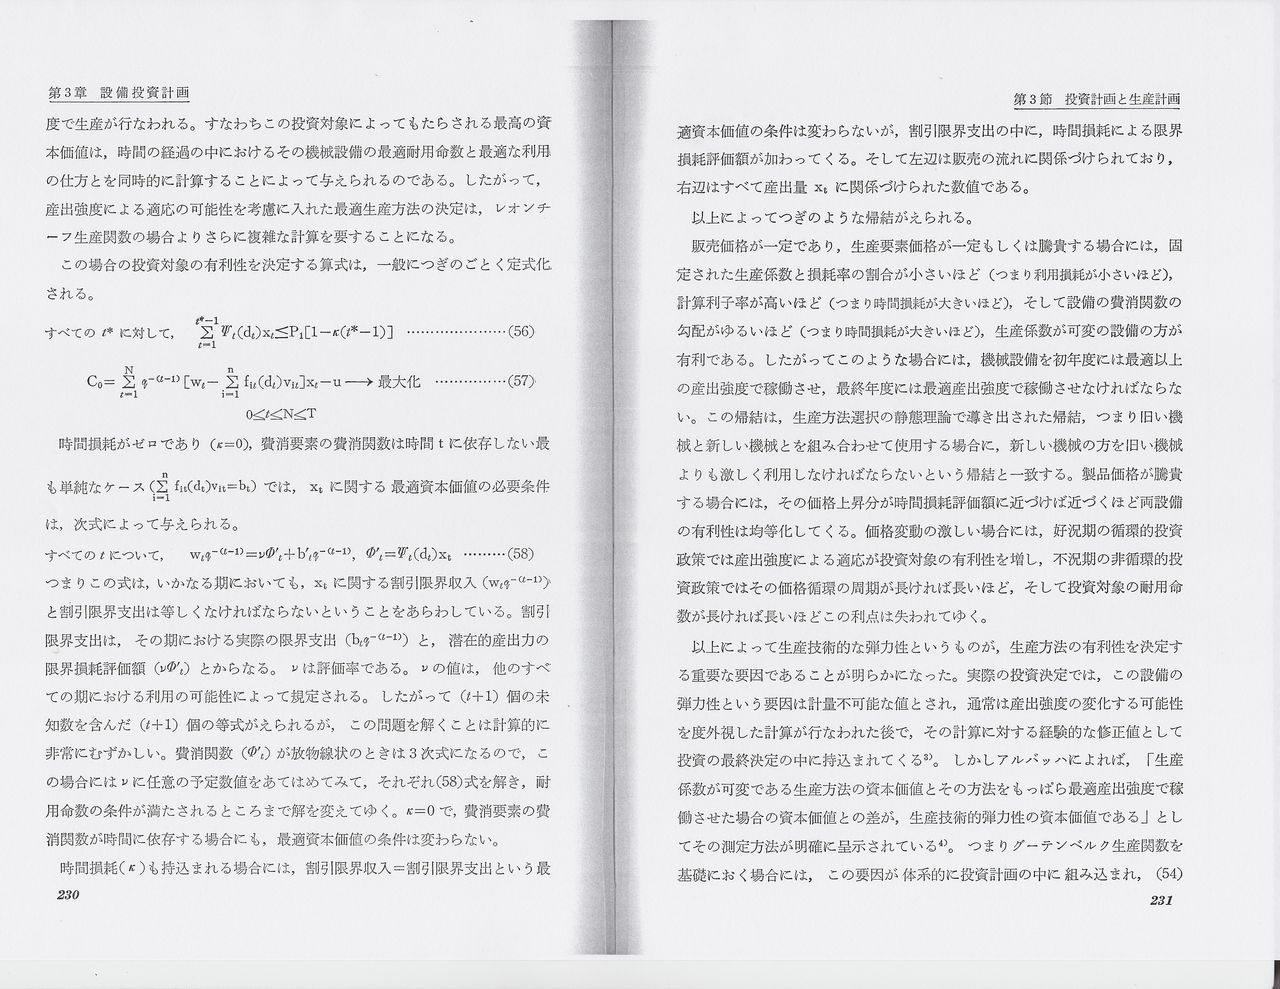 第3章 設備投資計画
度で生産が行なわれる。すなわちこの投資対象によってもたらされる最高の資
本価値は，時間の経過の中におけるその機械設備の最適耐用命数と最適な利用
の仕方とを同時的に計算することによって与えられるのである。したがって，
産出強度による適応の可能性を考慮に入れた最適生産方法の決定は，レオンチ
ーフ生産関数の場合よりさらに複雑な計算を要することになる。
この場合の投資対象の有利性を決定する算式は，一般につぎのごとく定式化
される。
すべての t* に対して， Σ_{t=1}^{t*-1} Ψ_t(d_t)x_t≦P₁[1-κ(t*-1)] ………………(56)
C₀= Σ_{t=1}^{N} q^{-(t-1)}[w_t- Σ_{i=1}^{n} f_{it}(d_t)v_{it}]x_t-u⟶最大化 …………(57)
0≦t≦N≦T
時間損耗がゼロであり (κ=0)，費消要素の費消関数は時間 t に依存しない最
も単純なケース (Σ_{i=1}^{n} f_{it}(d_t)v_{it}=b_t) では， x_t に関する 最適資本価値の必要条件
は，次式によって与えられる。
すべての t について， w_t q^{-(t-1)}=νΦ'_t+b'_t q^{-(t-1)}, Φ'_t=Ψ_t(d_t)x_t ………(58)
つまりこの式は，いかなる期においても，x_t に関する割引限界収入 (w_t q^{-(t-1)})
と割引限界支出は等しくなければならないということをあらわしている。割引
限界支出は， その期における実際の限界支出 (b_t q^{-(t-1)}) と， 潜在的産出力の
限界損耗評価額 (νΦ'_t) とからなる。 ν は評価率である。 ν の値は， 他のすべ
ての期における利用の可能性によって規定される。 したがって (t+1) 個の未
知数を含んだ (t+1) 個の等式がえられるが， この問題を解くことは計算的に
非常にむずかしい。費消関数 (Φ'_t) が放物線状のときは3次式になるので，こ
の場合には ν に任意の予定数値をあてはめてみて，それぞれ(58)式を解き，耐
用命数の条件が満たされるところまで解を変えてゆく。κ=0 で，費消要素の費
消関数が時間に依存する場合にも，最適資本価値の条件は変わらない。
時間損耗(κ)も持込まれる場合には，割引限界収入=割引限界支出という最
230
第3節 投資計画と生産計画
適資本価値の条件は変わらないが，割引限界支出の中に，時間損耗による限界
損耗評価額が加わってくる。そして左辺は販売の流れに関係づけられており，
右辺はすべて産出量 x_t に関係づけられた数値である。
以上によってつぎのような帰結がえられる。
販売価格が一定であり，生産要素価格が一定もしくは騰貴する場合には，固
定された生産係数と損耗率の割合が小さいほど（つまり利用損耗が小さいほど），
計算利子率が高いほど（つまり時間損耗が大きいほど），そして設備の費消関数の
勾配がゆるいほど（つまり時間損耗が大きいほど），生産係数が可変の設備の方が
有利である。したがってこのような場合には，機械設備を初年度には最適以上
の産出強度で稼働させ，最終年度には最適産出強度で稼働させなければならな
い。この帰結は，生産方法選択の静態理論で導き出された帰結，つまり旧い機
械と新しい機械とを組み合わせて使用する場合に，新しい機械の方を旧い機械
よりも激しく利用しなければならないという帰結と一致する。製品価格が騰貴
する場合には，その価格上昇分が時間損耗評価額に近づけば近づくほど両設備
の有利性は均等化してくる。価格変動の激しい場合には，好況期の循環的投資
政策では産出強度による適応が投資対象の有利性を増し，不況期の非循環的投
資政策ではその価格循環の周期が長ければ長いほど，そして投資対象の耐用命
数が長ければ長いほどこの利点は失われてゆく。
以上によって生産技術的な弾力性というものが，生産方法の有利性を決定す
る重要な要因であることが明らかになった。実際の投資決定では，この設備の
弾力性という要因は計量不可能な値とされ，通常は産出強度の変化する可能性
を度外視した計算が行なわれた後で，その計算に対する経験的な修正値として
投資の最終決定の中に持込まれてくる³⁾。 しかしアルバッハによれば，「生産
係数が可変である生産方法の資本価値とその方法をもっぱら最適産出強度で稼
働させた場合の資本価値との差が，生産技術的弾力性の資本価値である」とし
てその測定方法が明確に呈示されている⁴⁾。 つまりグーテンベルク生産関数を
基礎におく場合には， この要因が体系的に投資計画の中に組み込まれ， (54)
231